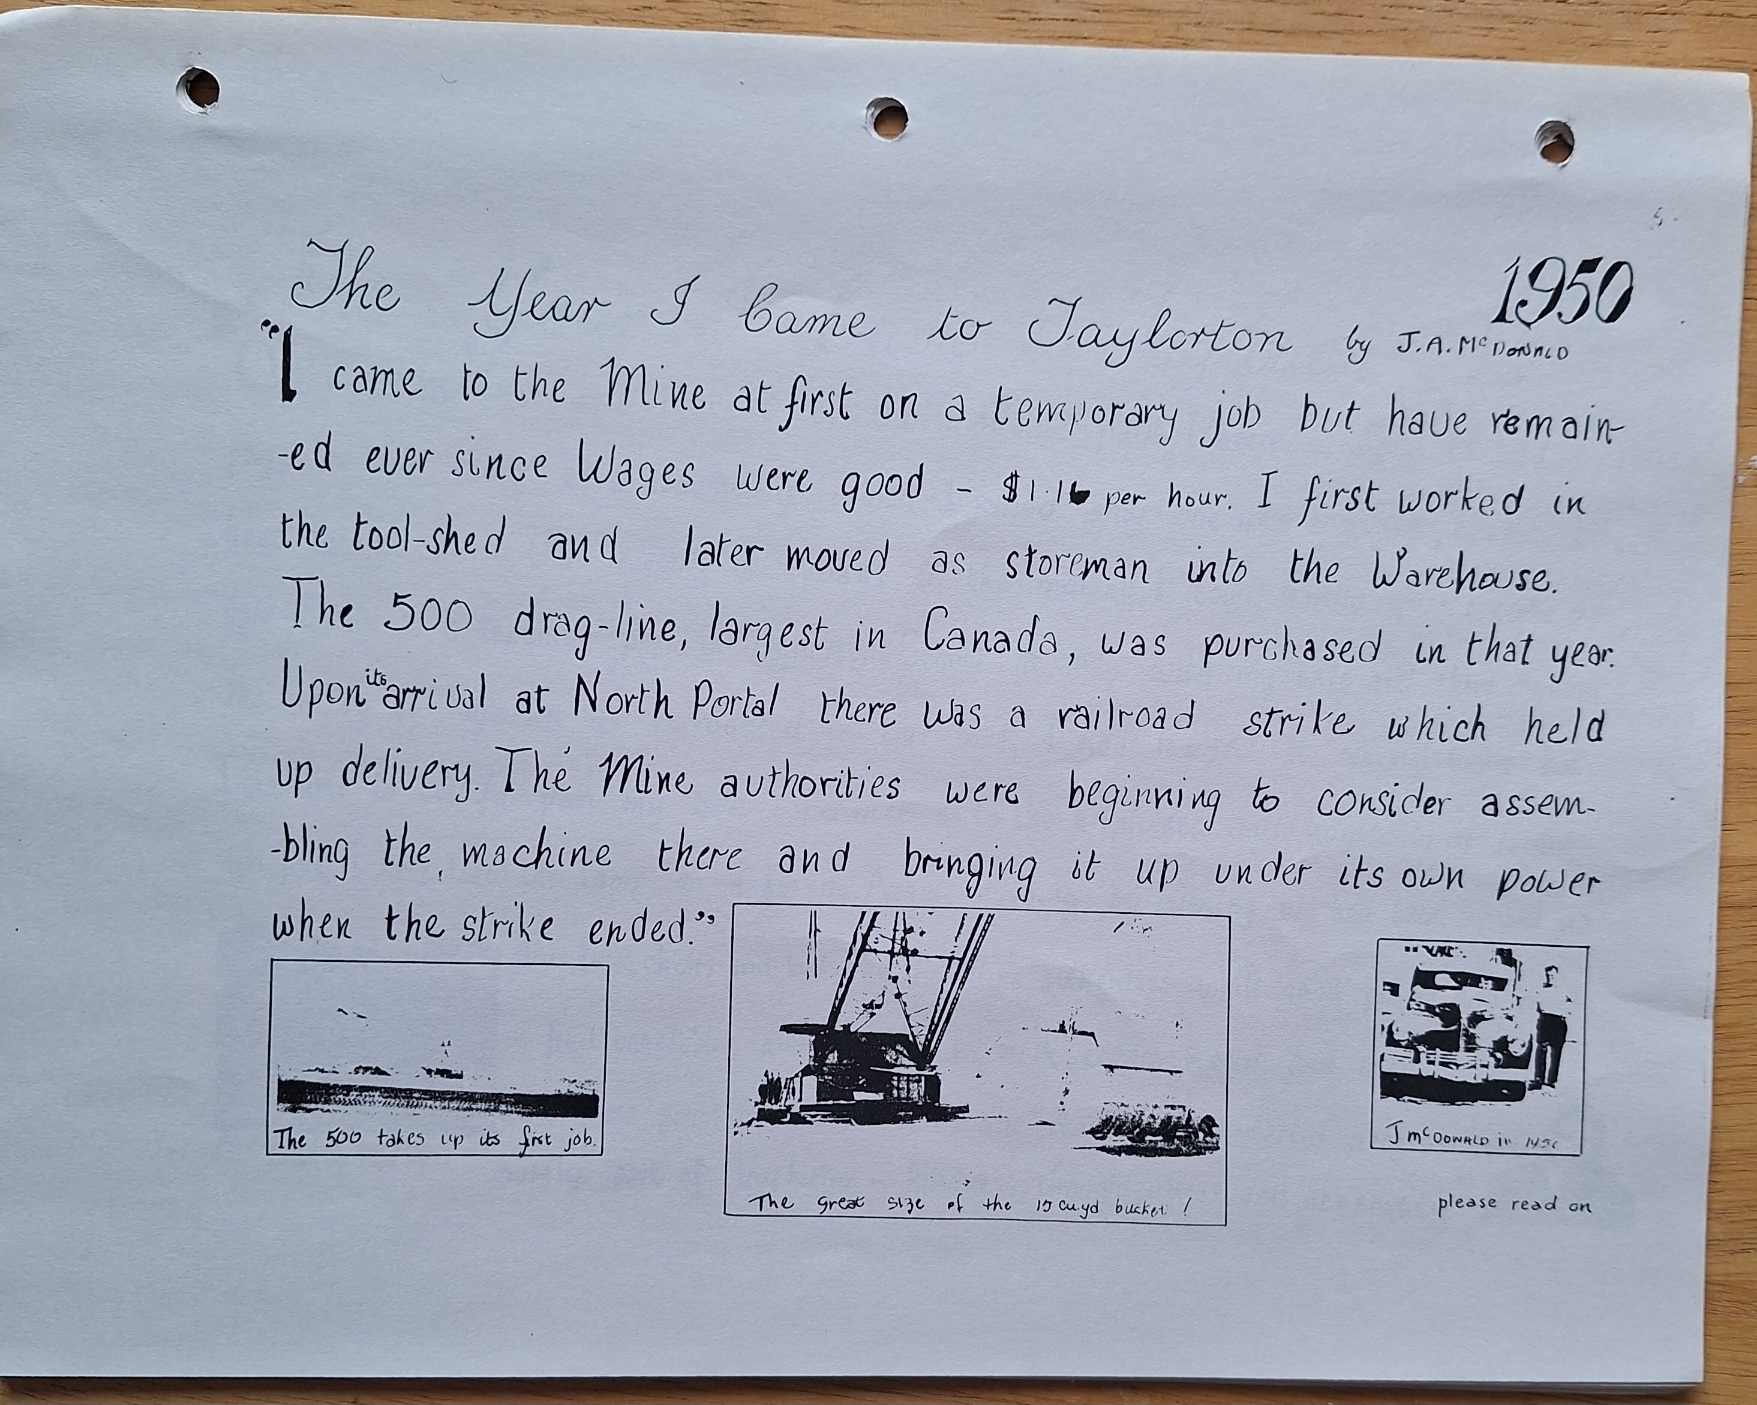 5.
The Year I Came to Taylorton 1950
by J.A. McDonald
"I came to the Mine at first on a temporary job but have remain-
-ed ever since Wages were good - $1.16 per hour. I first worked in
the tool-shed and later moved as storeman into the Warehouse.
The 500 drag-line, largest in Canada, was purchased in that year.
Upon its arrival at North Portal there was a railroad strike which held
up delivery. The Mine authorities were beginning to consider assem-
-bling the machine there and bringing it up under its own power
when the strike ended."
The 500 takes up its first job.
The great size of the 15 cu.yd bucket!
J McDonald in
please read on